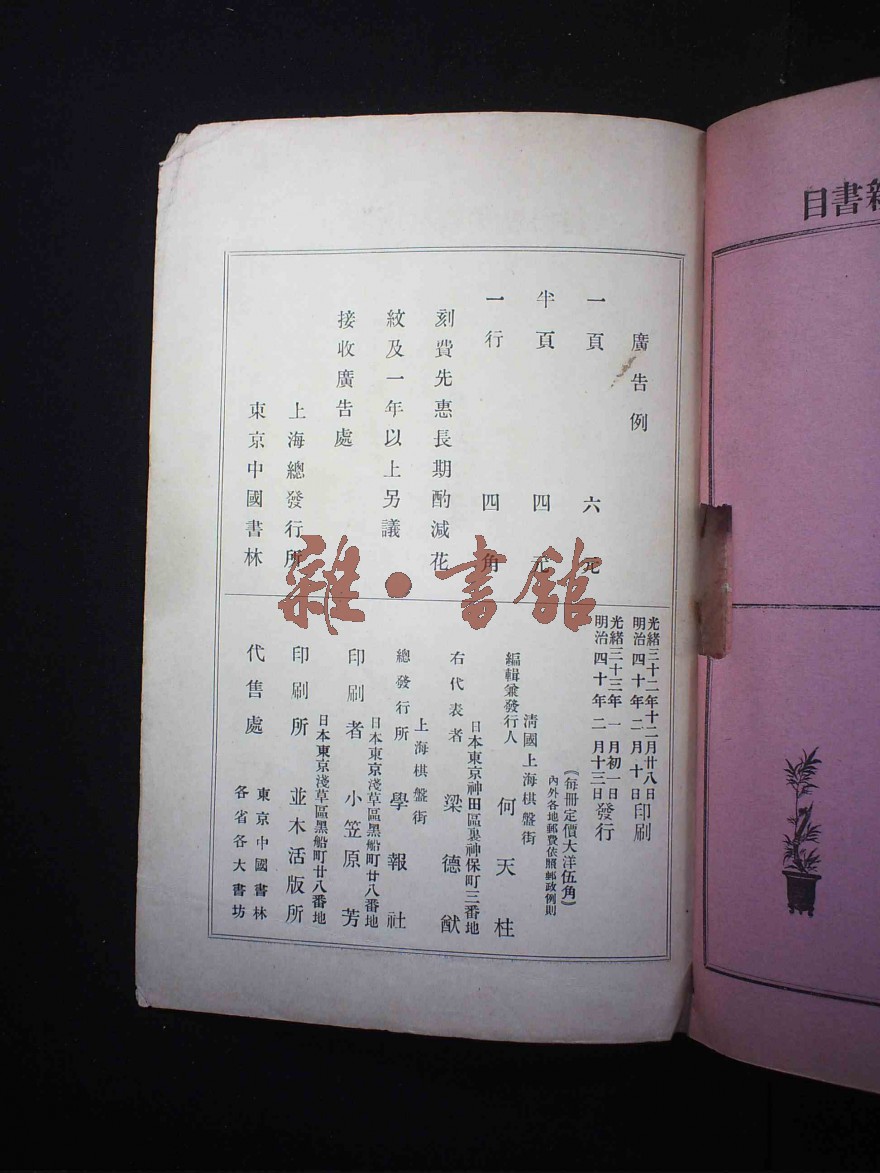 新書目
廣告例
一頁 六元
半頁 四元
一行 四角
刻費先惠長期酌減花
紋及一年以上另議
接收廣告處
上海總發行所
東京中國書林
光緒三十二年十二月廿八日
明治四十年二月十日印刷
光緒三十三年一月初一日
明治四十年二月十三日發行
（每冊定價大洋伍角）
內外各地郵費依照郵政例則
清國上海棋盤街
編輯兼發行人 何天柱
日本東京神田區裏神保町三番地
右代表者 梁德猷
上海棋盤街
總發行所 學報社
日本東京淺草區黑船町廿八番地
印刷者 小笠原芳
日本東京淺草區黑船町廿八番地
印刷所 並木活版所
代售處
東京中國書林
各省各大書坊
雜·書館